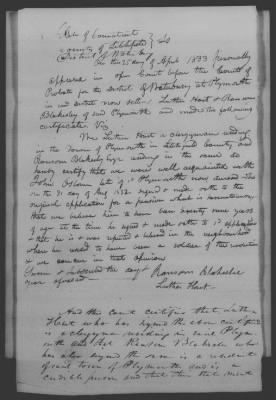 State of Connecticut
County of Litchfield } SS
District of Waterbury
On the 25 day of April 1833 personally
appeared in open Court before the Court of
Probate for the District of Waterbury at Plymouth
in said district now sitting Luther Hart & Ransom
Blakesley of said Plymouth and made the following
certificate Viz
We Luther Hart a clergyman residing
in the Town of Plymouth in Litchfield County and
Ransom Blakesley Esqr residing in the same do
hereby certify that we were well acquainted with
John late of Plymouth now deceased who
on the day of Aug 1832 signed & made oath to the
original application for a pension what is
that we believe him to have been seventy nine years
of age at the time he signed & made oath to sd application
& that he is & was reputed & believed in the neighbourhood
where he resided to have been a soldier of the revolution
& we concur in that opinion
Sworn & subscribed the day & Ransom Blakeslee
year aforesaid
Luther Hart
And this court certifies that Luther
Hart who has signed the above certificate
is a clergyman residing in said Plym
outh and that Ransom Blakeslee who
has also signed the same is a resident
of said town of Plymouth and is a
credible person and that their statement